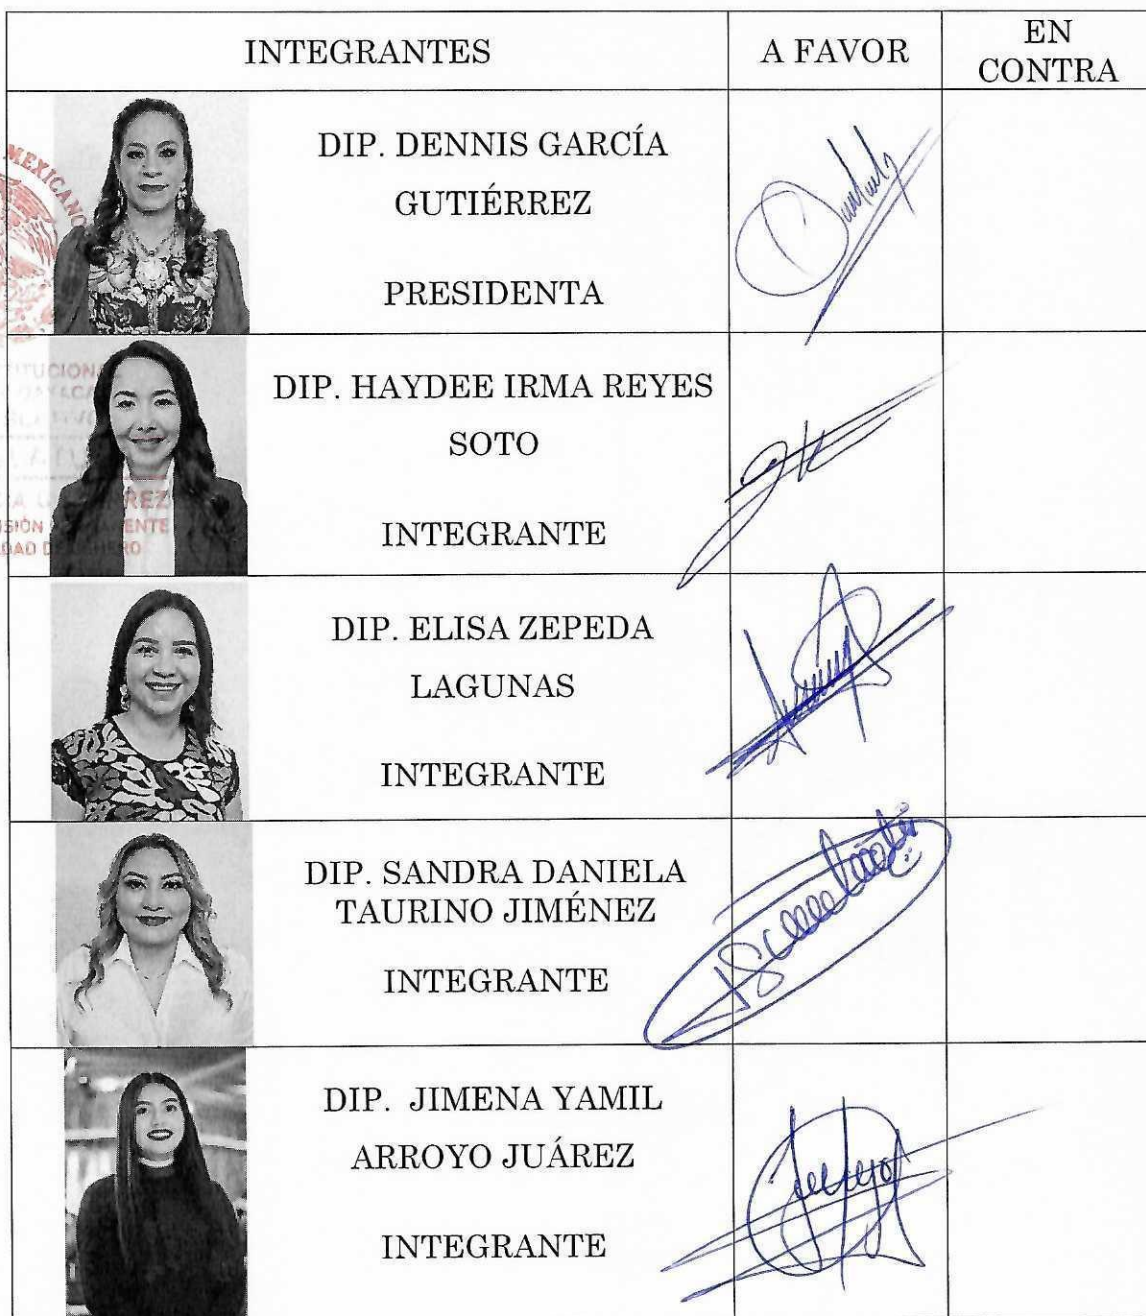 INTEGRANTES
A FAVOR
EN
CONTRA
DIP. DENNIS GARCÍA
GUTIÉRREZ
PRESIDENTA
DIP. HAYDEE IRMA REYES
SOTO
INTEGRANTE
DIP. ELISA ZEPEDA
LAGUNAS
INTEGRANTE
DIP. SANDRA DANIELA
TAURINO JIMÉNEZ
INTEGRANTE
DIP. JIMENA YAMIL
ARROYO JUÁREZ
INTEGRANTE